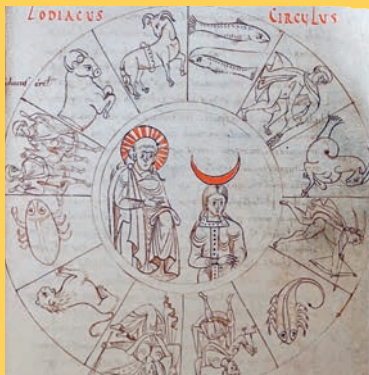 ZODIACUS CIRCULUS